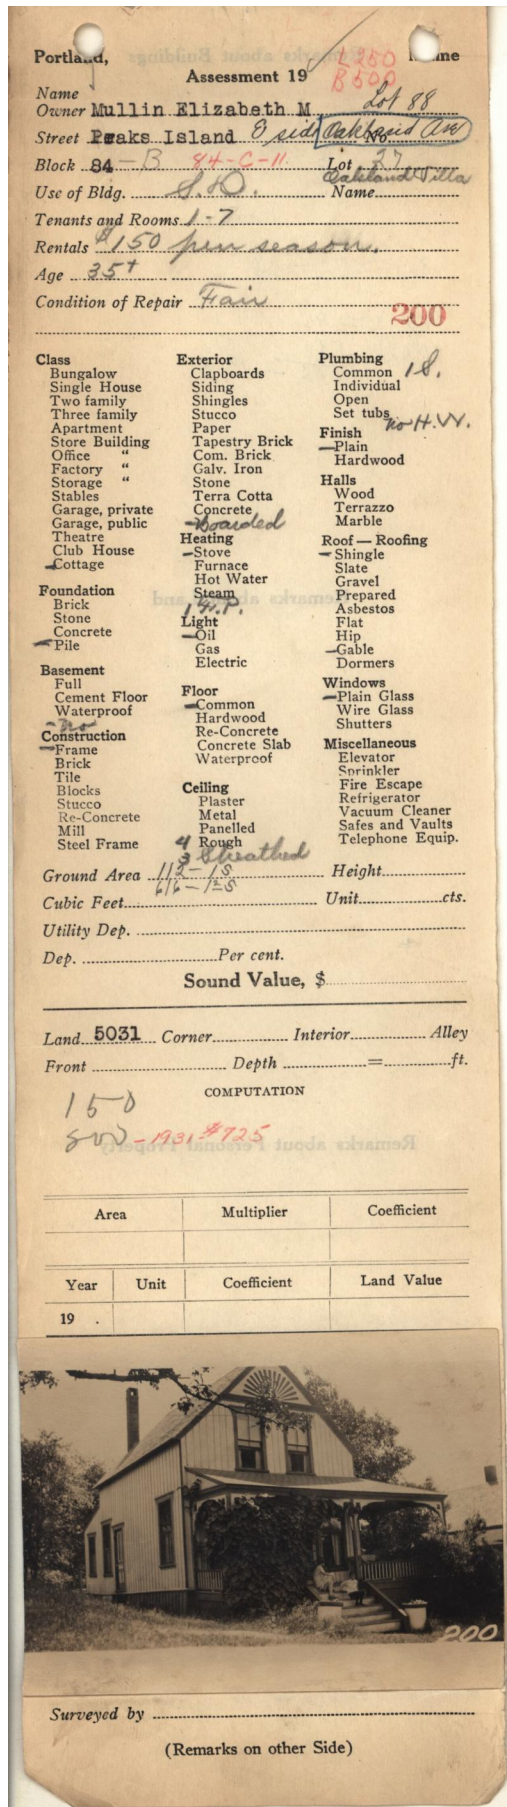 Portland, Maine
L 250
Assessment 19
B 500
Name Lot 88
Owner Mullin Elizabeth M
Street Peaks Island E side Oakland Ave No.
Block 84-B 84-C-11 Lot 27
Use of Bldg. S.D. Name Oakland Villa
Tenants and Rooms 1-7
Rentals $150 per season.
Age 35+
Condition of Repair Fair
200
Class
Bungalow
Single House
Two family
Three family
Apartment
Store Building
Office "
Factory "
Storage "
Stables
Garage, private
Garage, public
Theatre
Club House
Cottage
Foundation
Brick
Stone
Concrete
Pile
Basement
Full
Cement Floor
Waterproof
no
Construction
Frame
Brick
Tile
Blocks
Stucco
Re-Concrete
Mill
Steel Frame
Exterior
Clapboards
Siding
Shingles
Stucco
Paper
Tapestry Brick
Com. Brick
Galv. Iron
Stone
Terra Cotta
Concrete
Boarded
Heating
Stove
Furnace
Hot Water
Steam
1 F.P.
Light
Oil
Gas
Electric
Floor
Common
Hardwood
Re-Concrete
Concrete Slab
Waterproof
Ceiling
Plaster
Metal
Panelled
4 Rough
3 Sheathed
Plumbing
Common 1 S.
Individual
Open
Set tubs no H.W.
Finish
Plain
Hardwood
Halls
Wood
Terrazzo
Marble
Roof — Roofing
Shingle
Slate
Gravel
Prepared
Asbestos
Flat
Hip
Gable
Dormers
Windows
Plain Glass
Wire Glass
Shutters
Miscellaneous
Elevator
Sprinkler
Fire Escape
Refrigerator
Vacuum Cleaner
Safes and Vaults
Telephone Equip.
Ground Area 112-1S Height
616-1½S
Cubic Feet Unit cts.
Utility Dep.
Dep. Per cent.
Sound Value, $
Land 5031 Corner Interior Alley
Front Depth = ft.
COMPUTATION
150
800-1931 $725
Area Multiplier Coefficient
Year Unit Coefficient Land Value
19 .
200
Surveyed by
(Remarks on other Side)